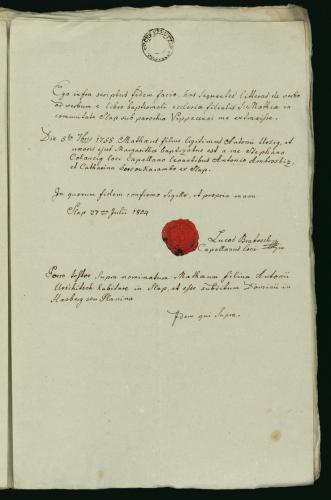 Ego infra scriptus fidem facio, has sequentes litteras de verbo
ad verbum e libro baptismali ecclesiæ filialis S. Mathiæ in
comunitate Slap sub parochia Vippacensi me extraxisse.
Die 5ta 7bris 1755 Mathæus filius legitimus Antonii Ursig, et
uxoris ejus Margaritha baptizatus est a me Stephano
loci Capellano levantibus Antonio Ambroshiz
et Catharina e Slap.
In quorum fidem confirmo Sigillo, et propria manu
Slap 27ma Julii 1804
Lucas
Capellanus loci
Porro testor Supra nominatum Mathæum filium Antonii
Urshitsch habitare in Slap, et esse subditum Dominii in
Hasberg seu Planina
Idem qui Supra.